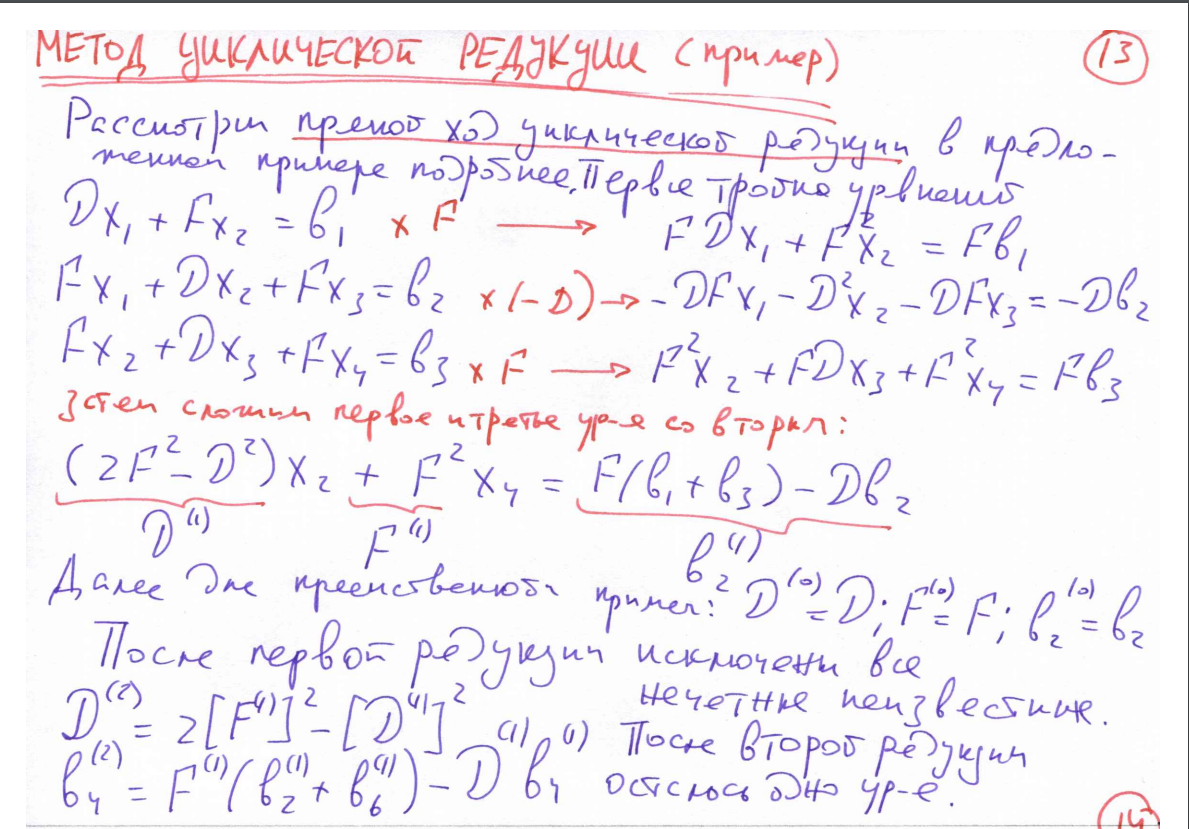 МЕТОД ЦИКЛИЧЕСКОЙ РЕДУКЦИИ (пример) 13
Рассмотрим прямой ход циклической редукции в предло-
женном примере подробнее. Первые тройка уравнений
Dx₁ + Fx₂ = b₁ × F → FDx₁ + F²x₂ = Fb₁
Fx₁ + Dx₂ + Fx₃ = b₂ × (-D) → -DFx₁ - D²x₂ - DFx₃ = -Db₂
Fx₂ + Dx₃ + Fx₄ = b₃ × F → F²x₂ + FDx₃ + F²x₄ = Fb₃
Затем сложим первое и третье ур-я со вторым:
(2F² - D²)x₂ + F²x₄ = F(b₁ + b₃) - Db₂
D⁽¹⁾ F⁽¹⁾ b₂⁽¹⁾
Далее для преемственности примем: D⁽⁰⁾ = D; F⁽⁰⁾ = F; b₂⁽⁰⁾ = b₂
После первой редукции исключены все
нечетные неизвестные.
D⁽²⁾ = 2[F⁽¹⁾]² - [D⁽¹⁾]²
После второй редукции
b₄⁽²⁾ = F⁽¹⁾(b₂⁽¹⁾ + b₆⁽¹⁾) - D⁽¹⁾b₄⁽¹⁾ осталось одно ур-е.
14